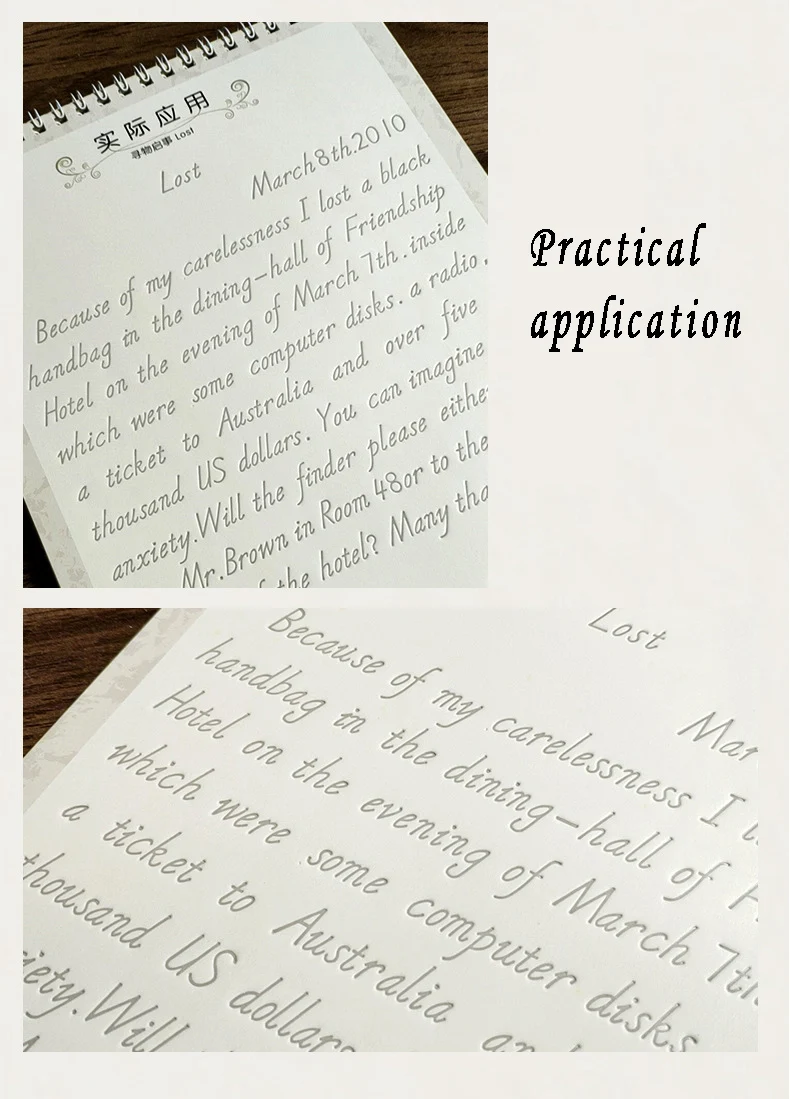 实际应用
寻物启事 Lost
Lost
March8th.2010
Because of my carelessness I lost a black
handbag in the dining-hall of Friendship
Hotel on the evening of March 7th.inside
which were some computer disks. a radio,
a ticket to Australia and over five
thousand US dollars. You can imagine
anxiety.Will the finder please eithe
Mr.Brown in Room 48or to the
the hotel? Many tha
Practical
application
Lost
Mar
Because of my carelessness I l
handbag in the dining-hall of F
Hotel on the evening of March 7th
which were some computer disks
a ticket to Australia an
thousand US dollars
iety.Will